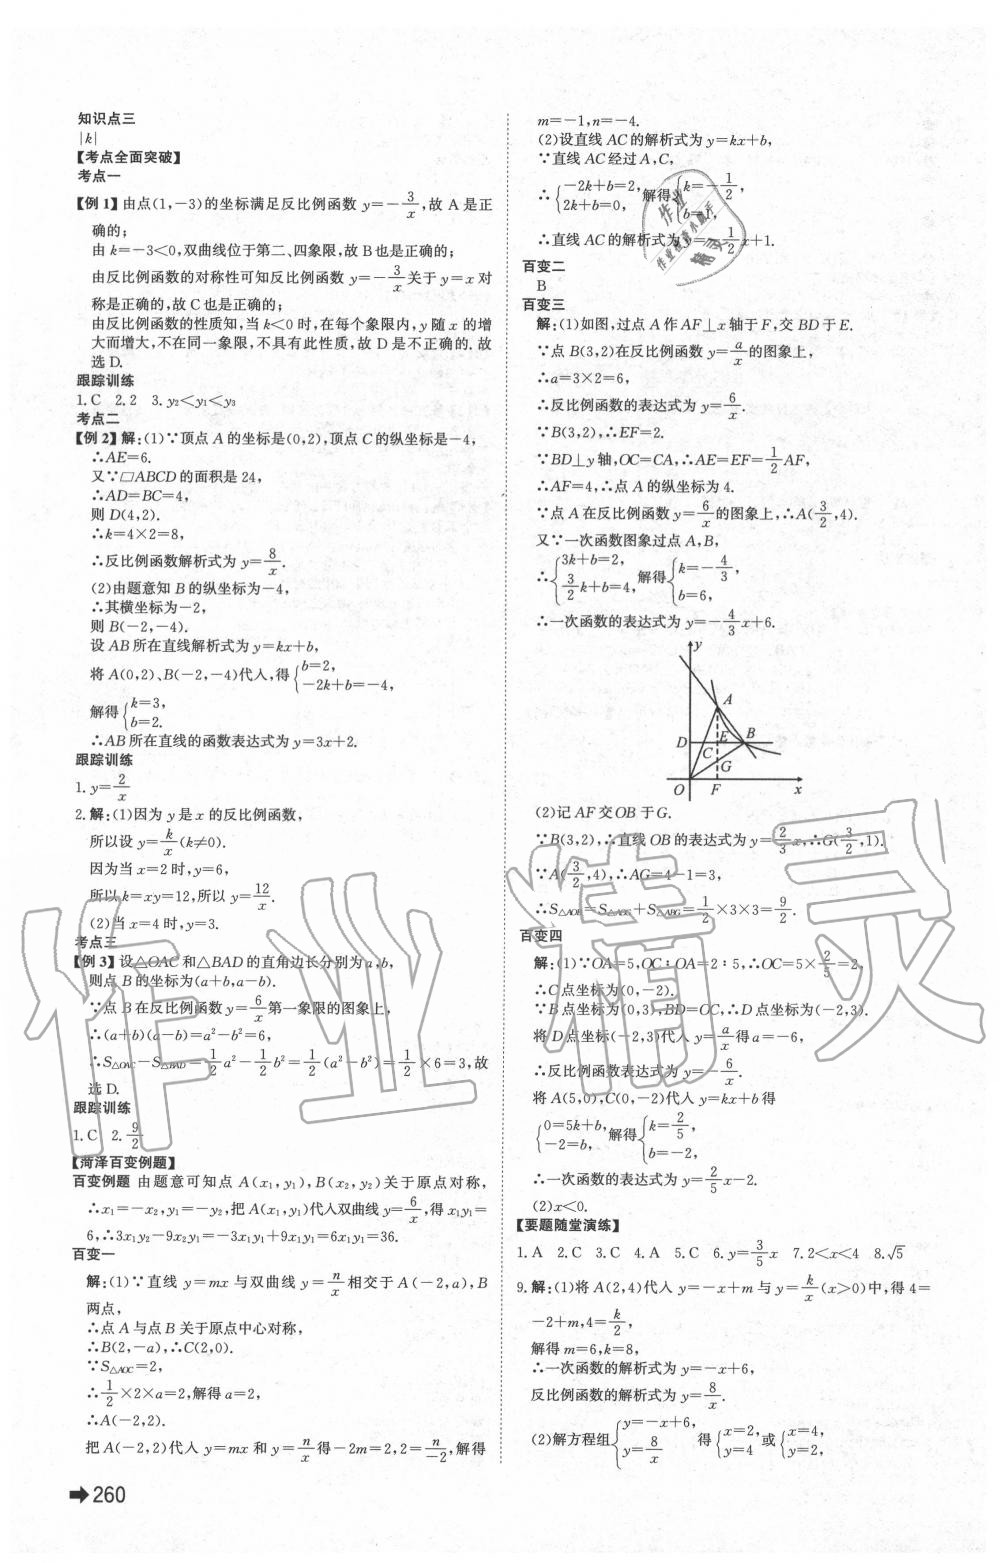 知识点三
|k|
【考点全面突破】
考点一
【例 1】由点(1,-3)的坐标满足反比例函数 y=-3/x,故 A 是正
确的;
由 k=-3<0,双曲线位于第二、四象限,故 B 也是正确的;
由反比例函数的对称性可知反比例函数 y=-3/x关于 y=x 对
称是正确的,故 C 也是正确的;
由反比例函数的性质知,当 k<0 时,在每个象限内,y 随 x 的增
大而增大,不在同一象限,不具有此性质,故 D 是不正确的. 故
选 D.
跟踪训练
1. C 2. 2 3. y₂<y₁<y₃
考点二
【例 2】解:(1)∵顶点 A 的坐标是(0,2),顶点 C 的纵坐标是-4,
∴AE=6.
又∵□ABCD 的面积是 24,
∴AD=BC=4,
则 D(4,2).
∴k=4×2=8,
∴反比例函数解析式为 y=8/x.
(2)由题意知 B 的纵坐标为-4,
∴其横坐标为-2,
则 B(-2,-4).
设 AB 所在直线解析式为 y=kx+b,
将 A(0,2)、B(-2,-4)代入,得{b=2, -2k+b=-4,
解得{k=3, b=2.
∴AB 所在直线的函数表达式为 y=3x+2.
跟踪训练
1. y=2/x
2. 解:(1)因为 y 是 x 的反比例函数,
所以设 y=k/x(k≠0).
因为当 x=2 时,y=6,
所以 k=xy=12,所以 y=12/x.
(2)当 x=4 时,y=3.
考点三
【例 3】设△OAC 和△BAD 的直角边长分别为 a,b,
则点 B 的坐标为(a+b,a-b).
∵点 B 在反比例函数 y=6/x第一象限的图象上,
∴(a+b)(a-b)=a²-b²=6,
∴S△OAC-S△BAD=1/2a²-1/2b²=1/2(a²-b²)=1/2×6=3,故
选 D.
跟踪训练
1. C 2. 9/2
【菏泽百变例题】
百变例题 由题意可知点 A(x₁,y₁),B(x₂,y₂)关于原点对称,
∴x₁=-x₂,y₁=-y₂,把 A(x₁,y₁)代入双曲线 y=6/x,得 x₁y₁=
6,∴3x₁y₂-9x₂y₁=-3x₁y₁+9x₁y₁=6x₁y₁=36.
百变一
解:(1)∵直线 y=mx 与双曲线 y=n/x相交于 A(-2,a),B
两点,
∴点 A 与点 B 关于原点中心对称,
∴B(2,-a),∴C(2,0).
∵S△AOC=2,
∴1/2×2×a=2,解得 a=2,
∴A(-2,2).
把 A(-2,2)代入 y=mx 和 y=n/x得-2m=2,2=n/-2,解得
260
m=-1,n=-4.
(2)设直线 AC 的解析式为 y=kx+b,
∵直线 AC 经过 A,C,
∴{-2k+b=2, 2k+b=0, 解得{k=-1/2, b=1,
∴直线 AC 的解析式为 y=-1/2x+1.
百变二
B
百变三
解:(1)如图,过点 A 作 AF⊥x 轴于 F,交 BD 于 E.
∵点 B(3,2)在反比例函数 y=a/x的图象上,
∴a=3×2=6,
∴反比例函数的表达式为 y=6/x.
∵B(3,2),∴EF=2.
∵BD⊥y 轴,OC=CA,∴AE=EF=1/2AF,
∴AF=4,∴点 A 的纵坐标为 4.
∵点 A 在反比例函数 y=6/x的图象上,∴A(3/2,4).
又∵一次函数图象过点 A,B,
∴{3k+b=2, 3/2k+b=4, 解得{k=-4/3, b=6,
∴一次函数的表达式为 y=-4/3x+6.
y
A
D E B
C
G
O F x
(2)记 AF 交 OB 于 G.
∵B(3,2),∴直线 OB 的表达式为 y=2/3x,∴G(3/2,1).
∵A(3/2,4),∴AG=4-1=3,
∴S△AOB=S△AOG+S△ABG=1/2×3×3=9/2.
百变四
解:(1)∵OA=5,OC∶OA=2∶5,∴OC=5×2/5=2,
∴C 点坐标为(0,-2).
∵B 点坐标为(0,3),BD=OC,∴D 点坐标为(-2,3).
将 D 点坐标(-2,3)代入 y=a/x得 a=-6,
∴反比例函数表达式为 y=-6/x.
将 A(5,0),C(0,-2)代入 y=kx+b 得
{0=5k+b, -2=b, 解得{k=2/5, b=-2,
∴一次函数的表达式为 y=2/5x-2.
(2)x<0.
【要题随堂演练】
1. A 2. C 3. C 4. A 5. C 6. y=3/5x 7. 2<x<4 8. √5
9. 解:(1)将 A(2,4)代入 y=-x+m 与 y=k/x(x>0)中,得 4=
-2+m,4=k/2,
解得 m=6,k=8,
∴一次函数的解析式为 y=-x+6,
反比例函数的解析式为 y=8/x.
(2)解方程组{y=-x+6, y=8/x 得{x=2, y=4 或{x=4, y=2,
作业精灵